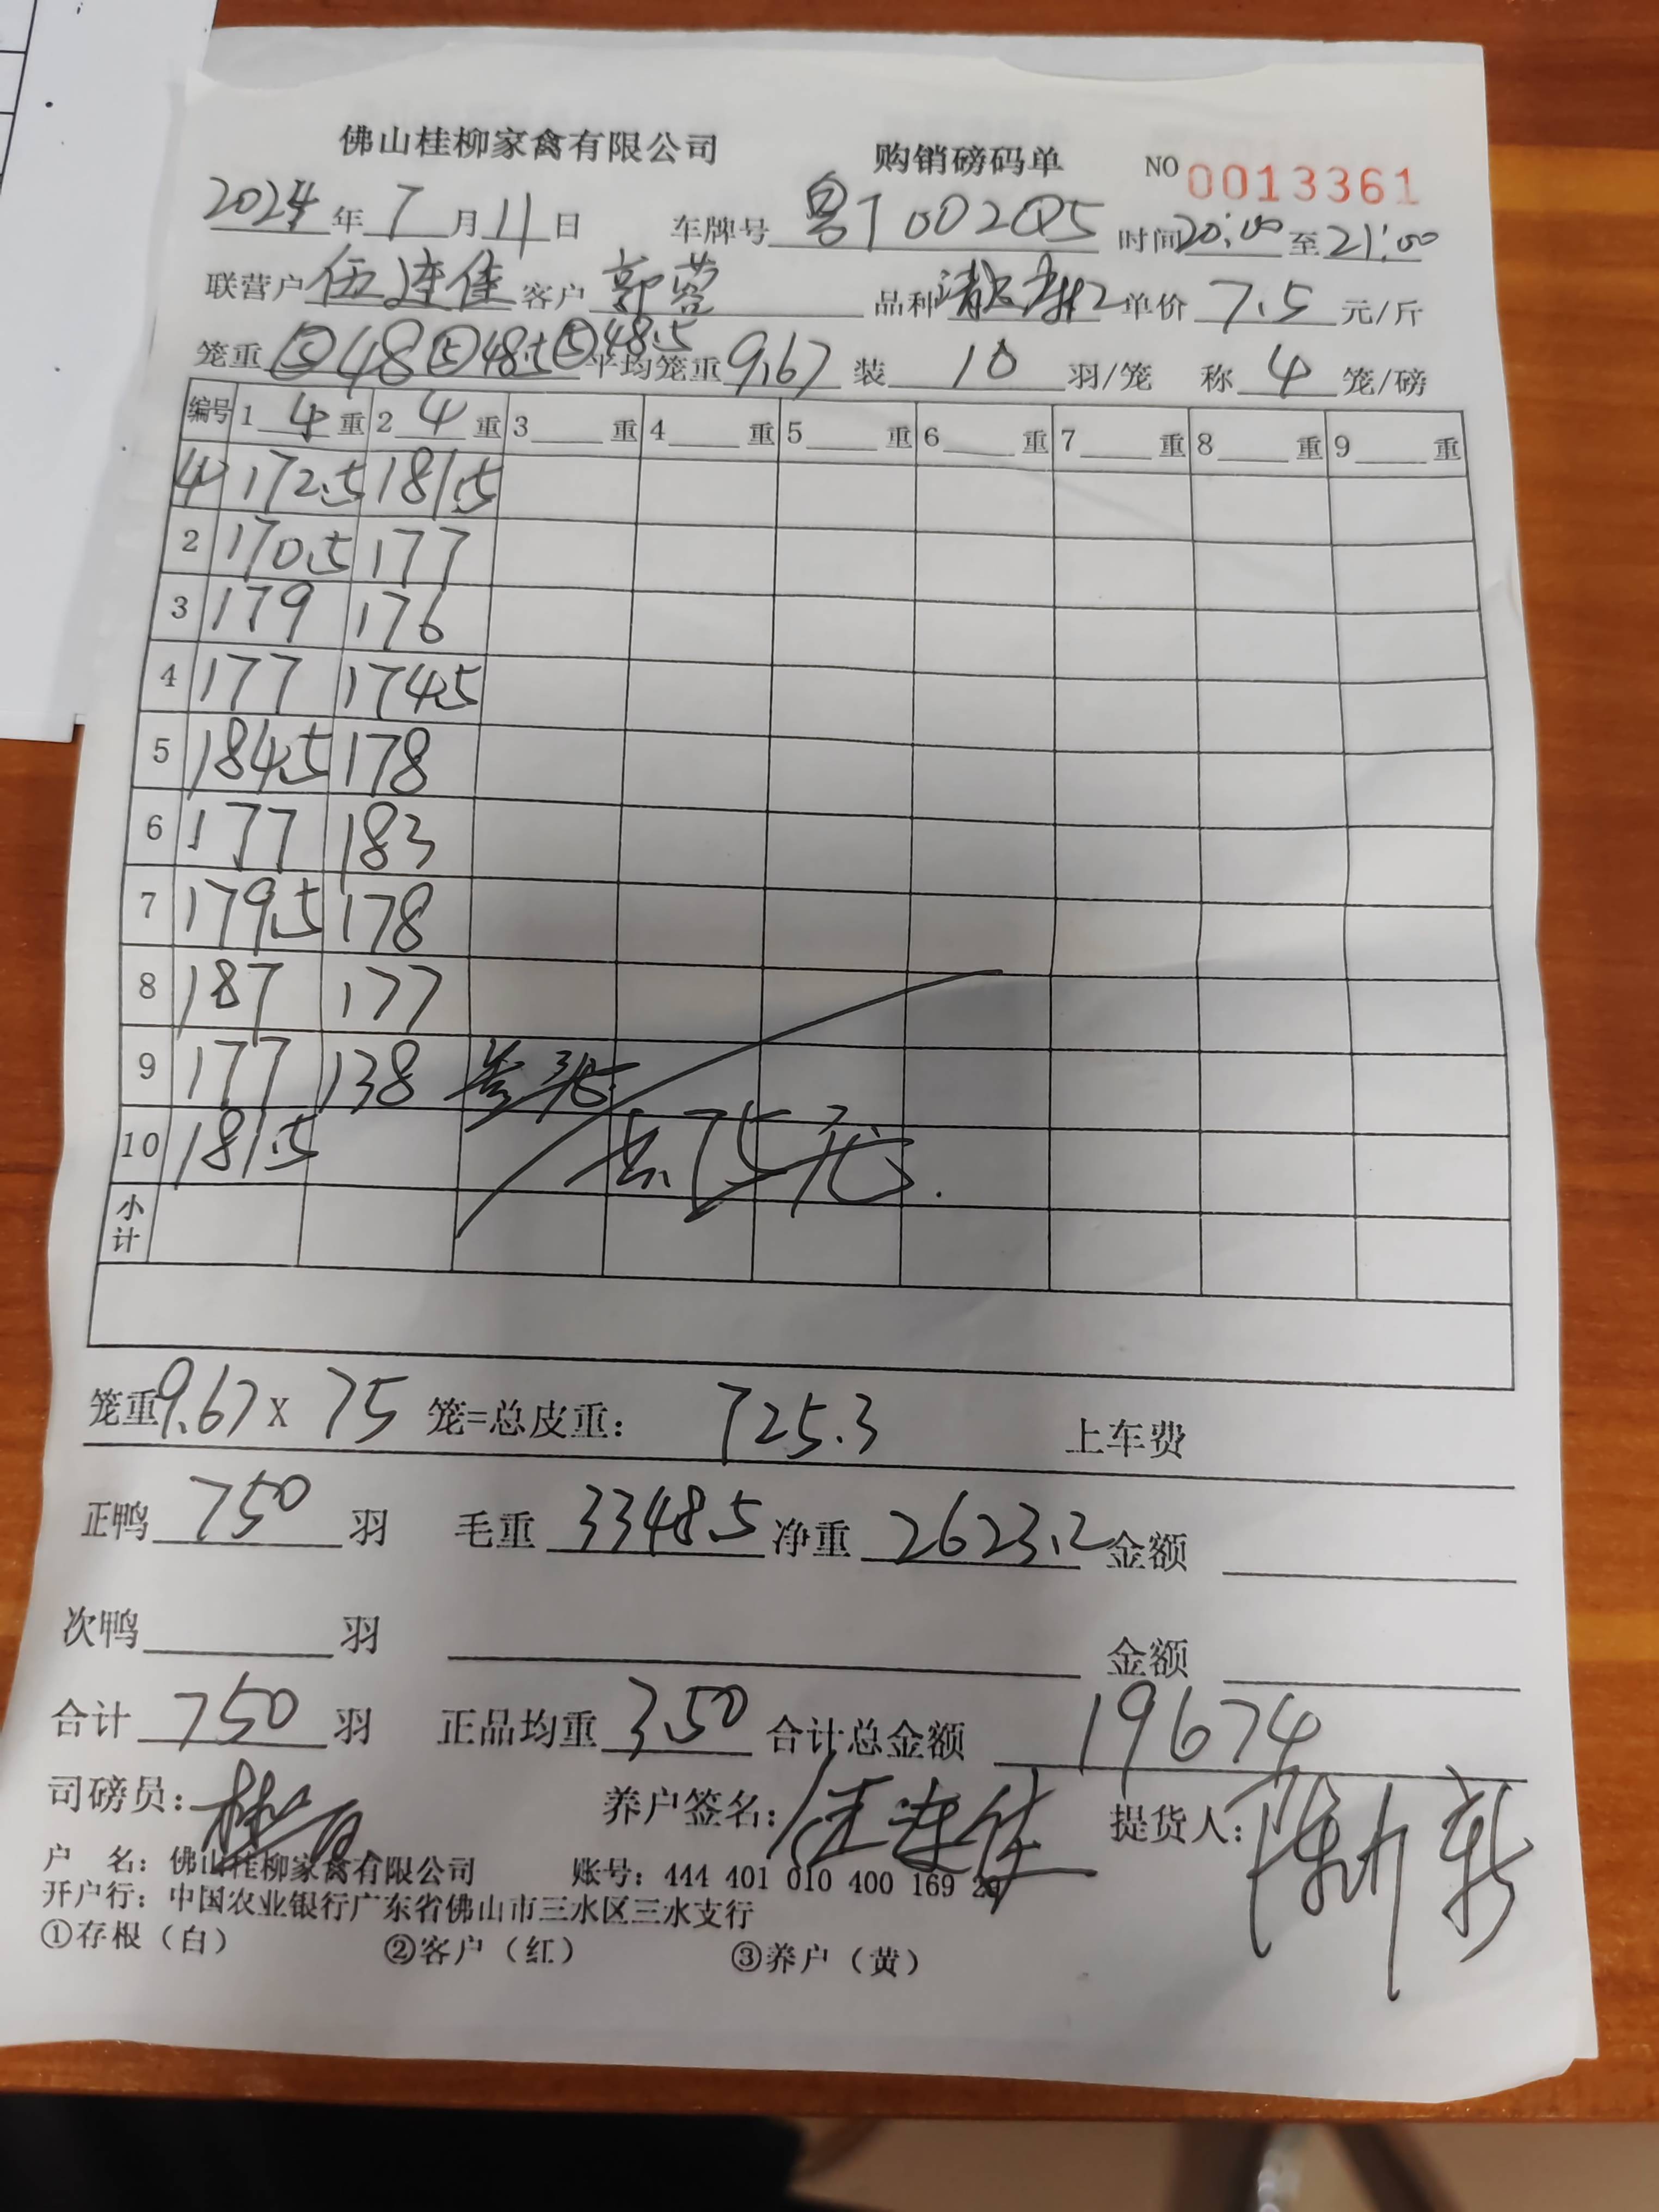 佛山桂柳家禽有限公司 购销磅码单 NO 0013361
2024年7月11日 车牌号粤T002Q5 时间20:00至21:00
联营户伍连佳 客户郭 品种 单价7.5元/斤
笼重⑤48⑤48.5⑤48.5 平均笼重9.67 装10羽/笼 称4笼/磅
编号 1 4 重 2 4 重 3 重 4 重 5 重 6 重 7 重 8 重 9 重
172.5 181.5
2 170.5 177
3 179 176
4 177 174.5
5 184.5 178
6 177 183
7 179.5 178
8 187 177
9 177 138 叁
10 181.5 75元.
小计
笼重9.67X75笼=总皮重: 725.3 上车费
正鸭750羽 毛重3348.5净重2623.2金额
次鸭 羽 金额
合计750羽 正品均重3.50合计总金额19674
司磅员: 养户签名:伍连佳 提货人:
户 名: 佛山桂柳家禽有限公司 账号: 444 401 010 400 169 29
开户行: 中国农业银行广东省佛山市三水区三水支行
①存根（白） ②客户（红） ③养户（黄）